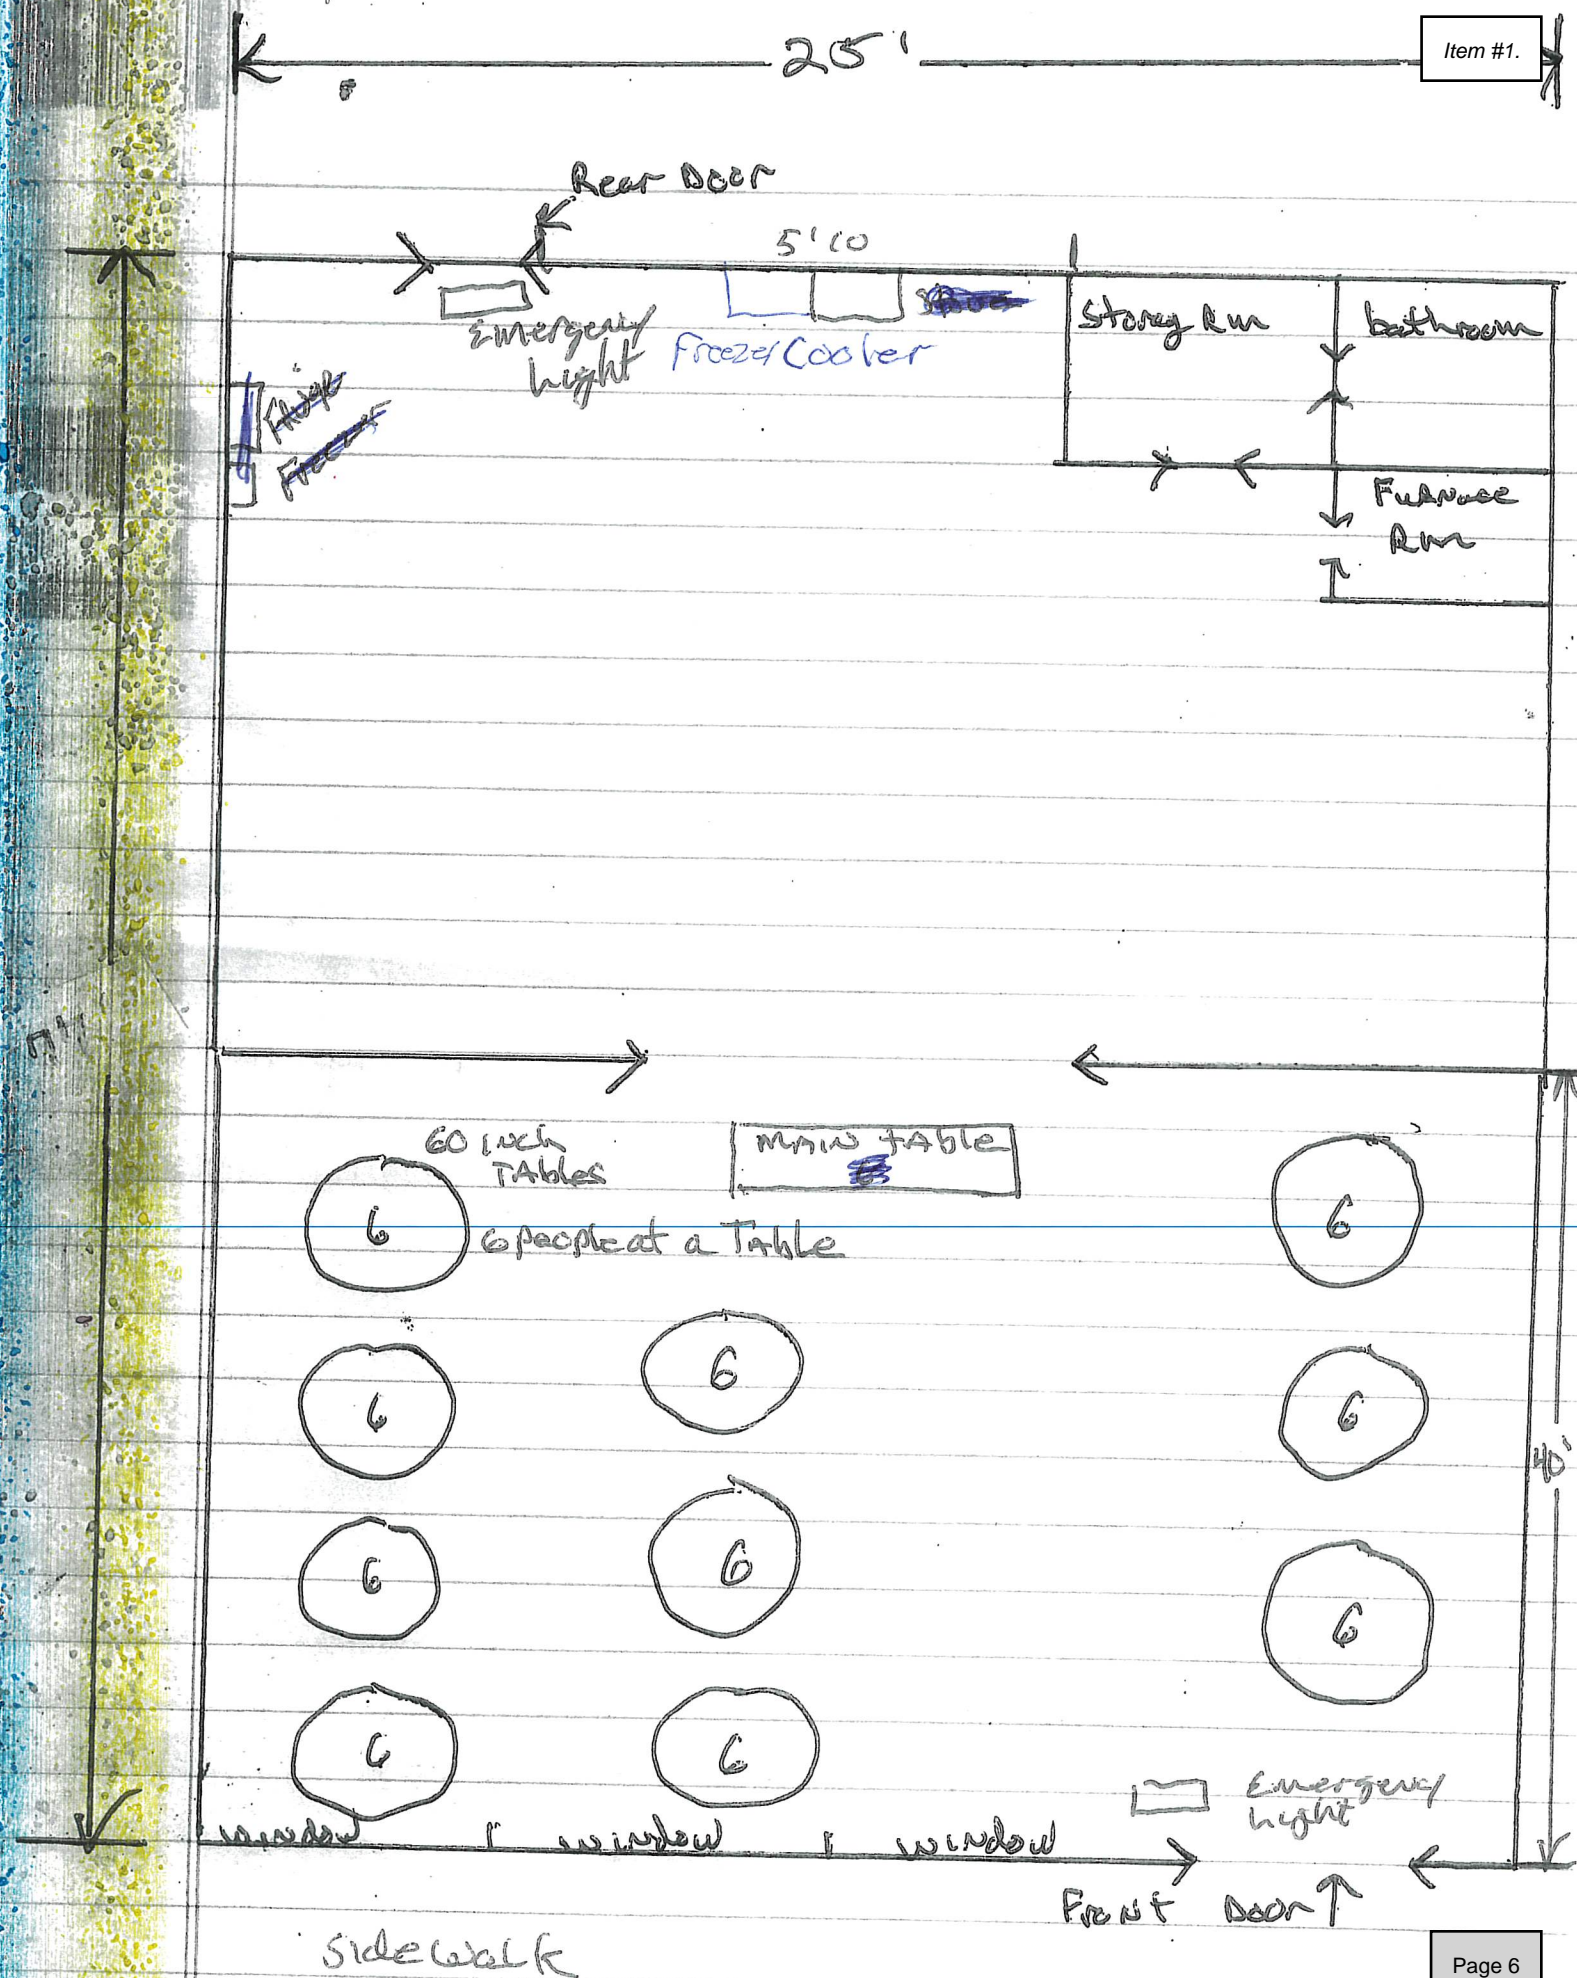 25'
Item #1.
Rear Door
5'10
Emergency
Light
Freezer Cooler
Storag Rm
bathroom
Fridge
Freezer
Furnace
Rm
60 inch
TAbles
MAIN TAble
6
6
6 people at a TAble
6
6
6
40'
6
6
6
6
6
6
Emergency
Light
window
window
window
Front Door
Sidewalk
Page 6